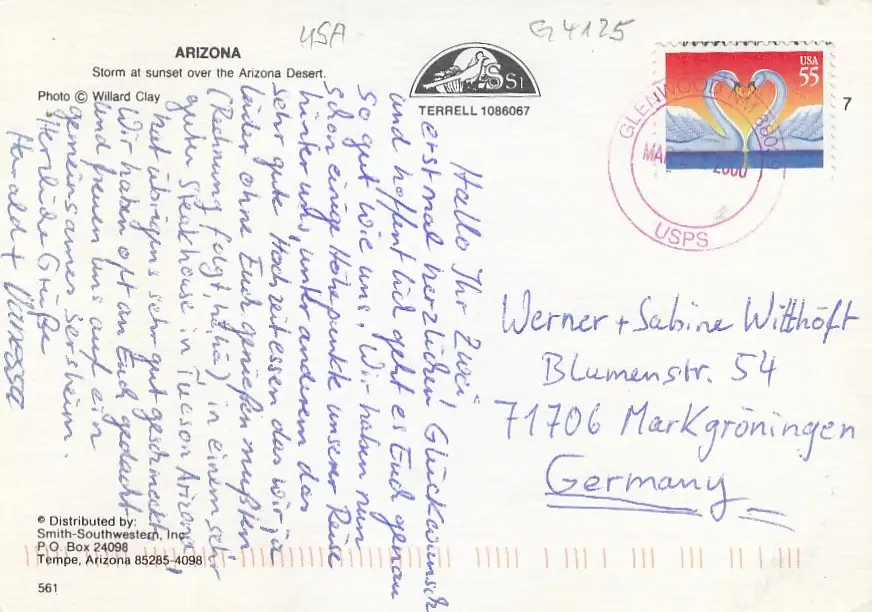 USA
G4125
ARIZONA
Storm at sunset over the Arizona Desert.
Photo © Willard Clay
SS1
TERRELL 1086067
USA
55
7
GLENWOOD NM 88039
MA 2000
USPS
Hallo Ihr Zwei!
erstmal herzlichen Glückwunsch
und hoffentlich geht es Euch genau
so gut wie uns. Wir haben nun
schon einige Höhepunkte unserer Reise
hinter uns, unter anderem das
sehr gute Hochzeitessen das wir ja
leider ohne Euch genießen mußten
(Rechnung folgt, haha) in einem sehr
guten Steakhouse in Tucson Arizona,
hat übrigens sehr gut geschmeckt!
Wir haben oft an Euch gedacht
und freuen uns auf ein
gemeinsames Sersheim.
Herzliche Grüße
Harald + Vanessa
Werner + Sabine Witthöft
Blumenstr. 54
71706 Markgröningen
Germany
© Distributed by:
Smith-Southwestern, Inc.
P.O. Box 24098
Tempe, Arizona 85285-4098
561